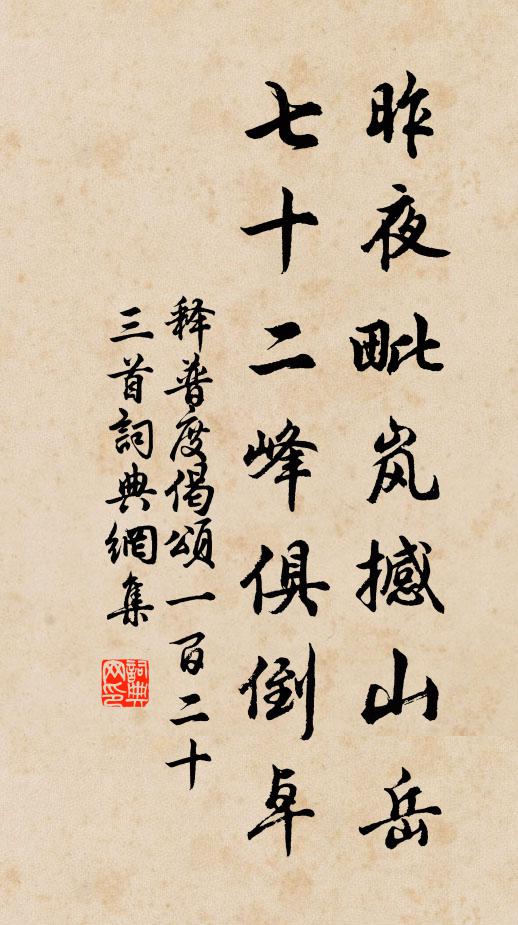 昨夜毗岚撼山岳
七十二峰俱倒卓
释普度偈頌一百二十
三首詞典網集
詞典网印